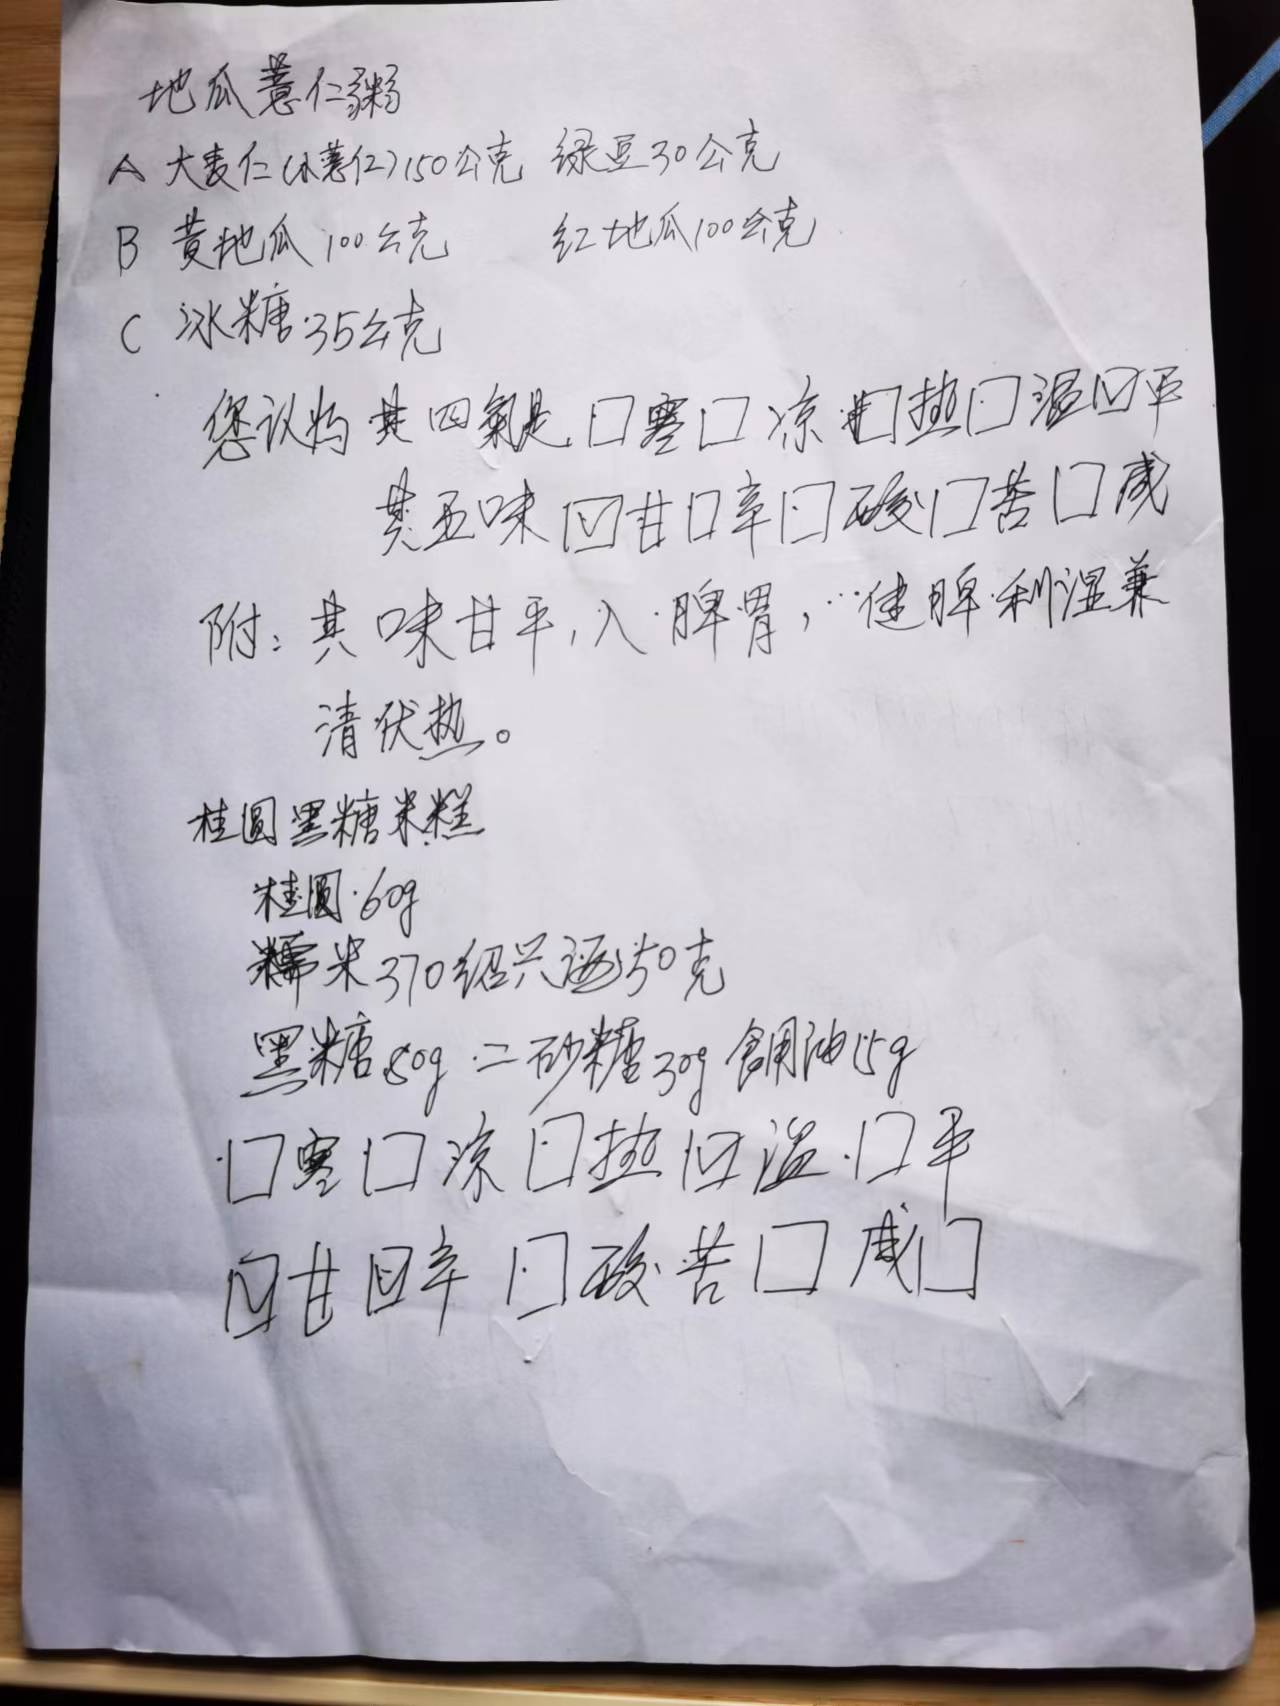 地瓜薏仁粥
A 大麦仁(小薏仁)150公克 绿豆30公克
B 黄地瓜100公克 红地瓜100公克
C 冰糖35公克
您认为其四氣是 □寒□凉□热□温☑平
其五味 ☑甘□辛□酸□苦□咸
附：其味甘平,入脾胃,…健脾利湿兼
清伏热。
桂圆黑糖米糕
桂圆60g
糯米370绍兴酒150克
黑糖80g 二砂糖30g 食用油15g
□寒□凉□热☑温□平
☑甘☑辛□酸苦□咸□